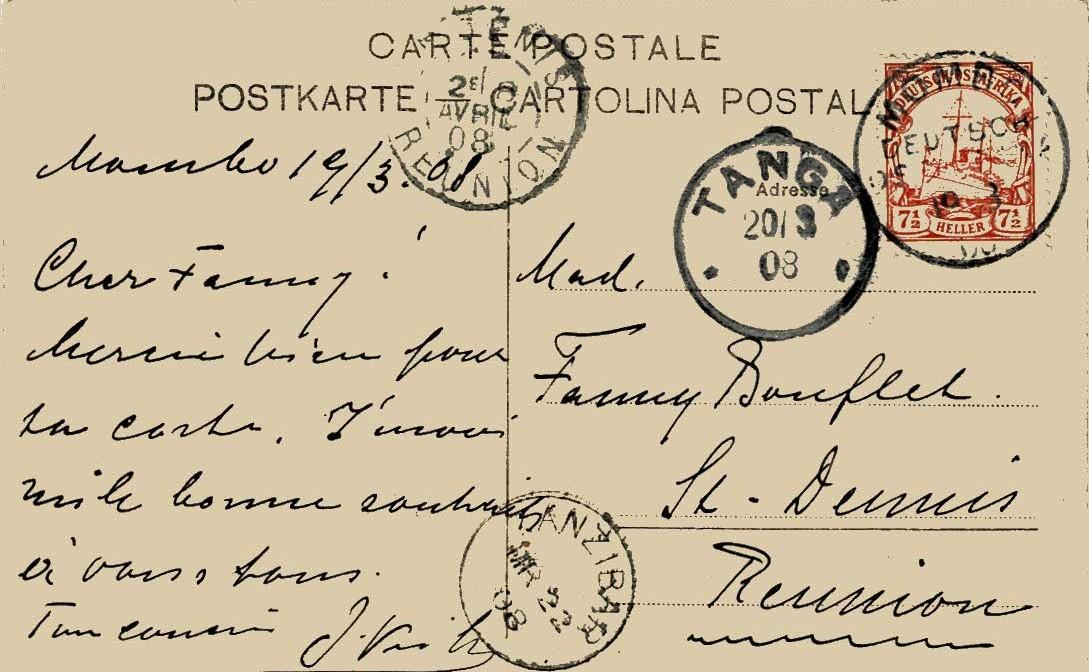 CARTE POSTALE
POSTKARTE — CARTOLINA POSTAL
ST DENIS
2E/
AVRIL
08
REUNION
DEUTSCH-OSTAFRIKA
7½ HELLER 7½
DEUTSCH
19 3
TANGA
20/3
08
Adresse
Mombo 19/3.08
Cher Fanny!
Merci bien pour
ta carte. J'envoie
mile bonne souhaits
à vous tous.
Ton cousin
Mad.
Fanny Bouflet.
St-Dennis
Reunion
ZANZIBAR
MR 22
08